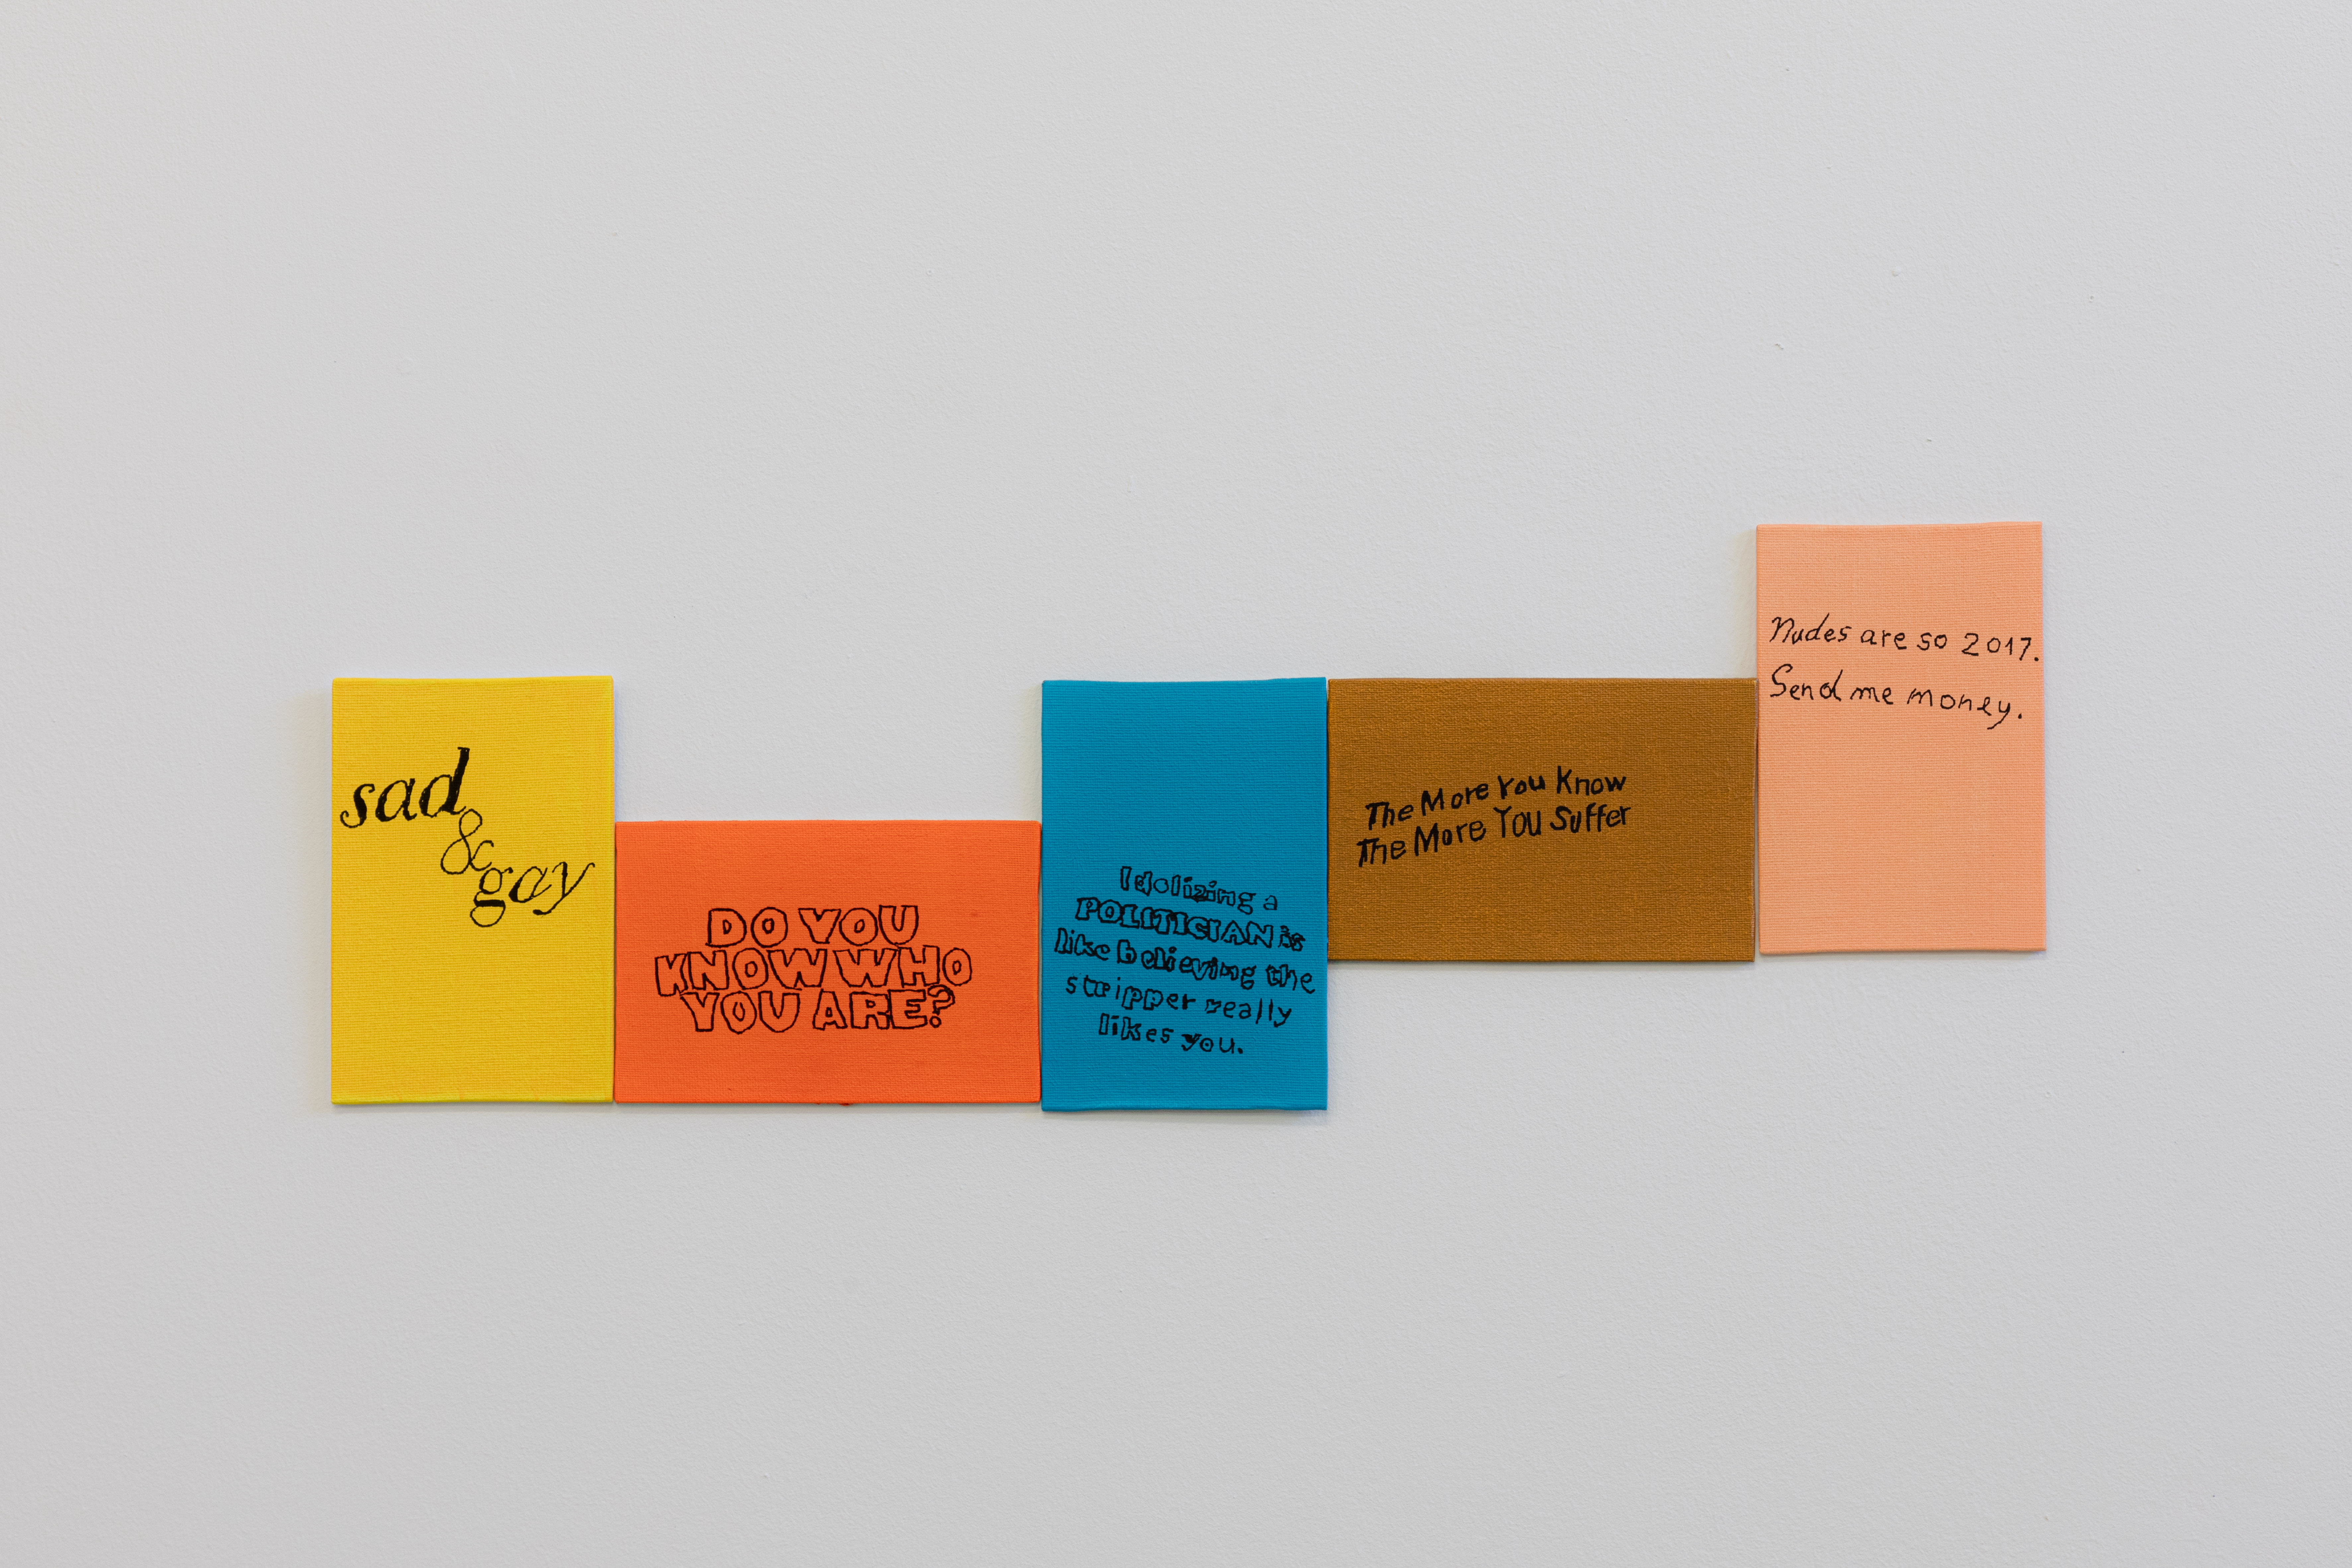 sad
&
gay
DO YOU
KNOW WHO
YOU ARE?
Idolizing a
POLITICIAN is
like believing the
stripper really
likes you.
The More You Know
The More You Suffer
Nudes are so 2017.
Send me money.